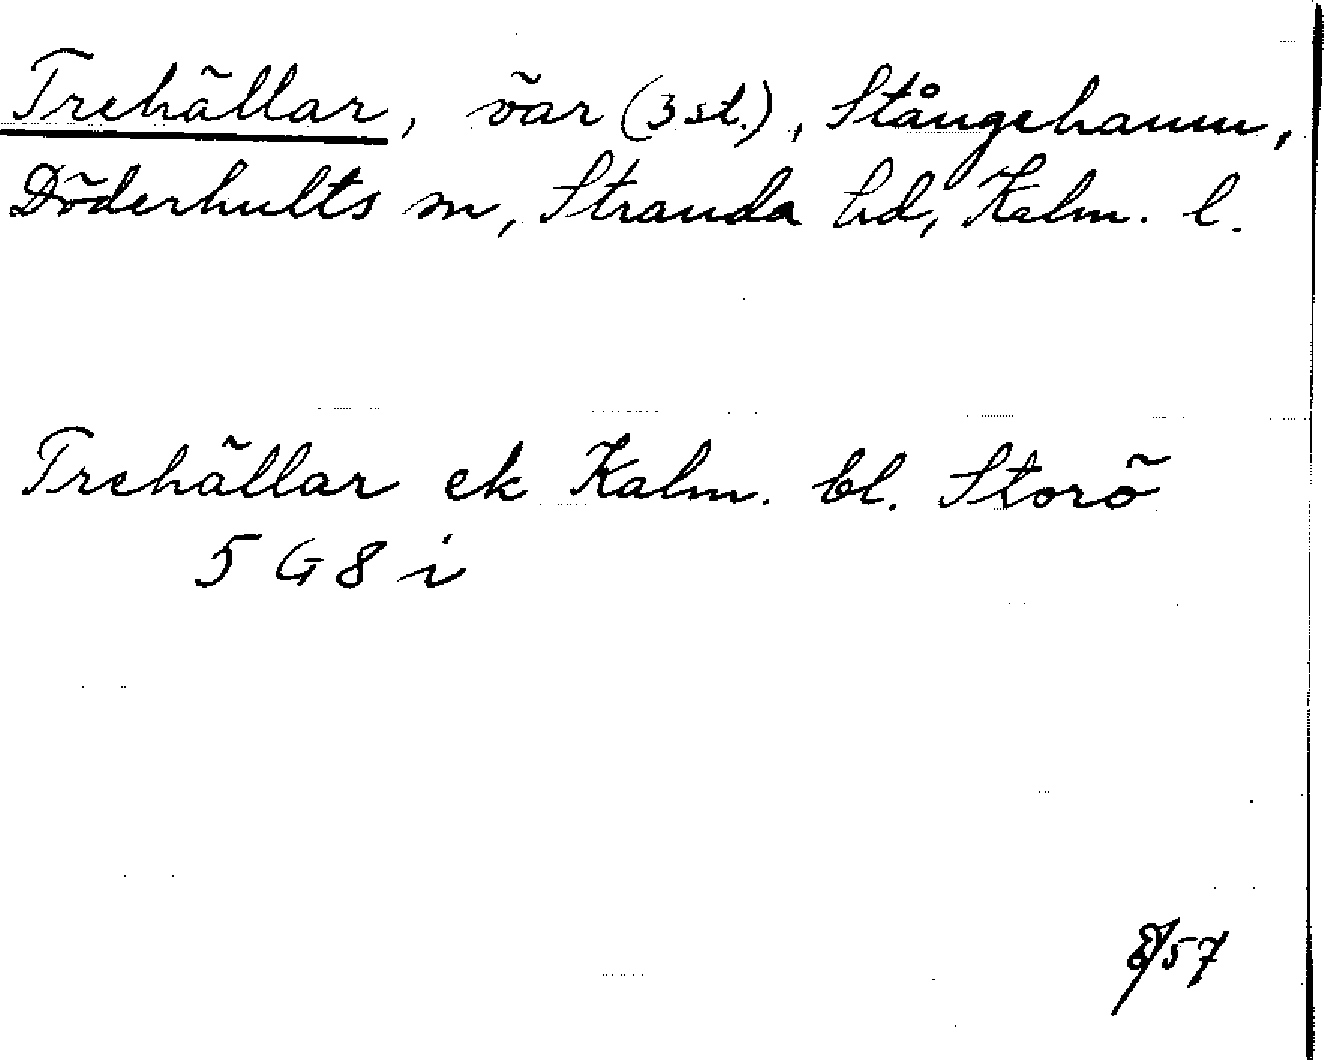 Trehällar, öar (3 st.), Stångehamn,
Döderhults sn, Stranda hd, Kalm. l.
Trehällar ek Kalm. bl. Storö
5 G 8 i
/57